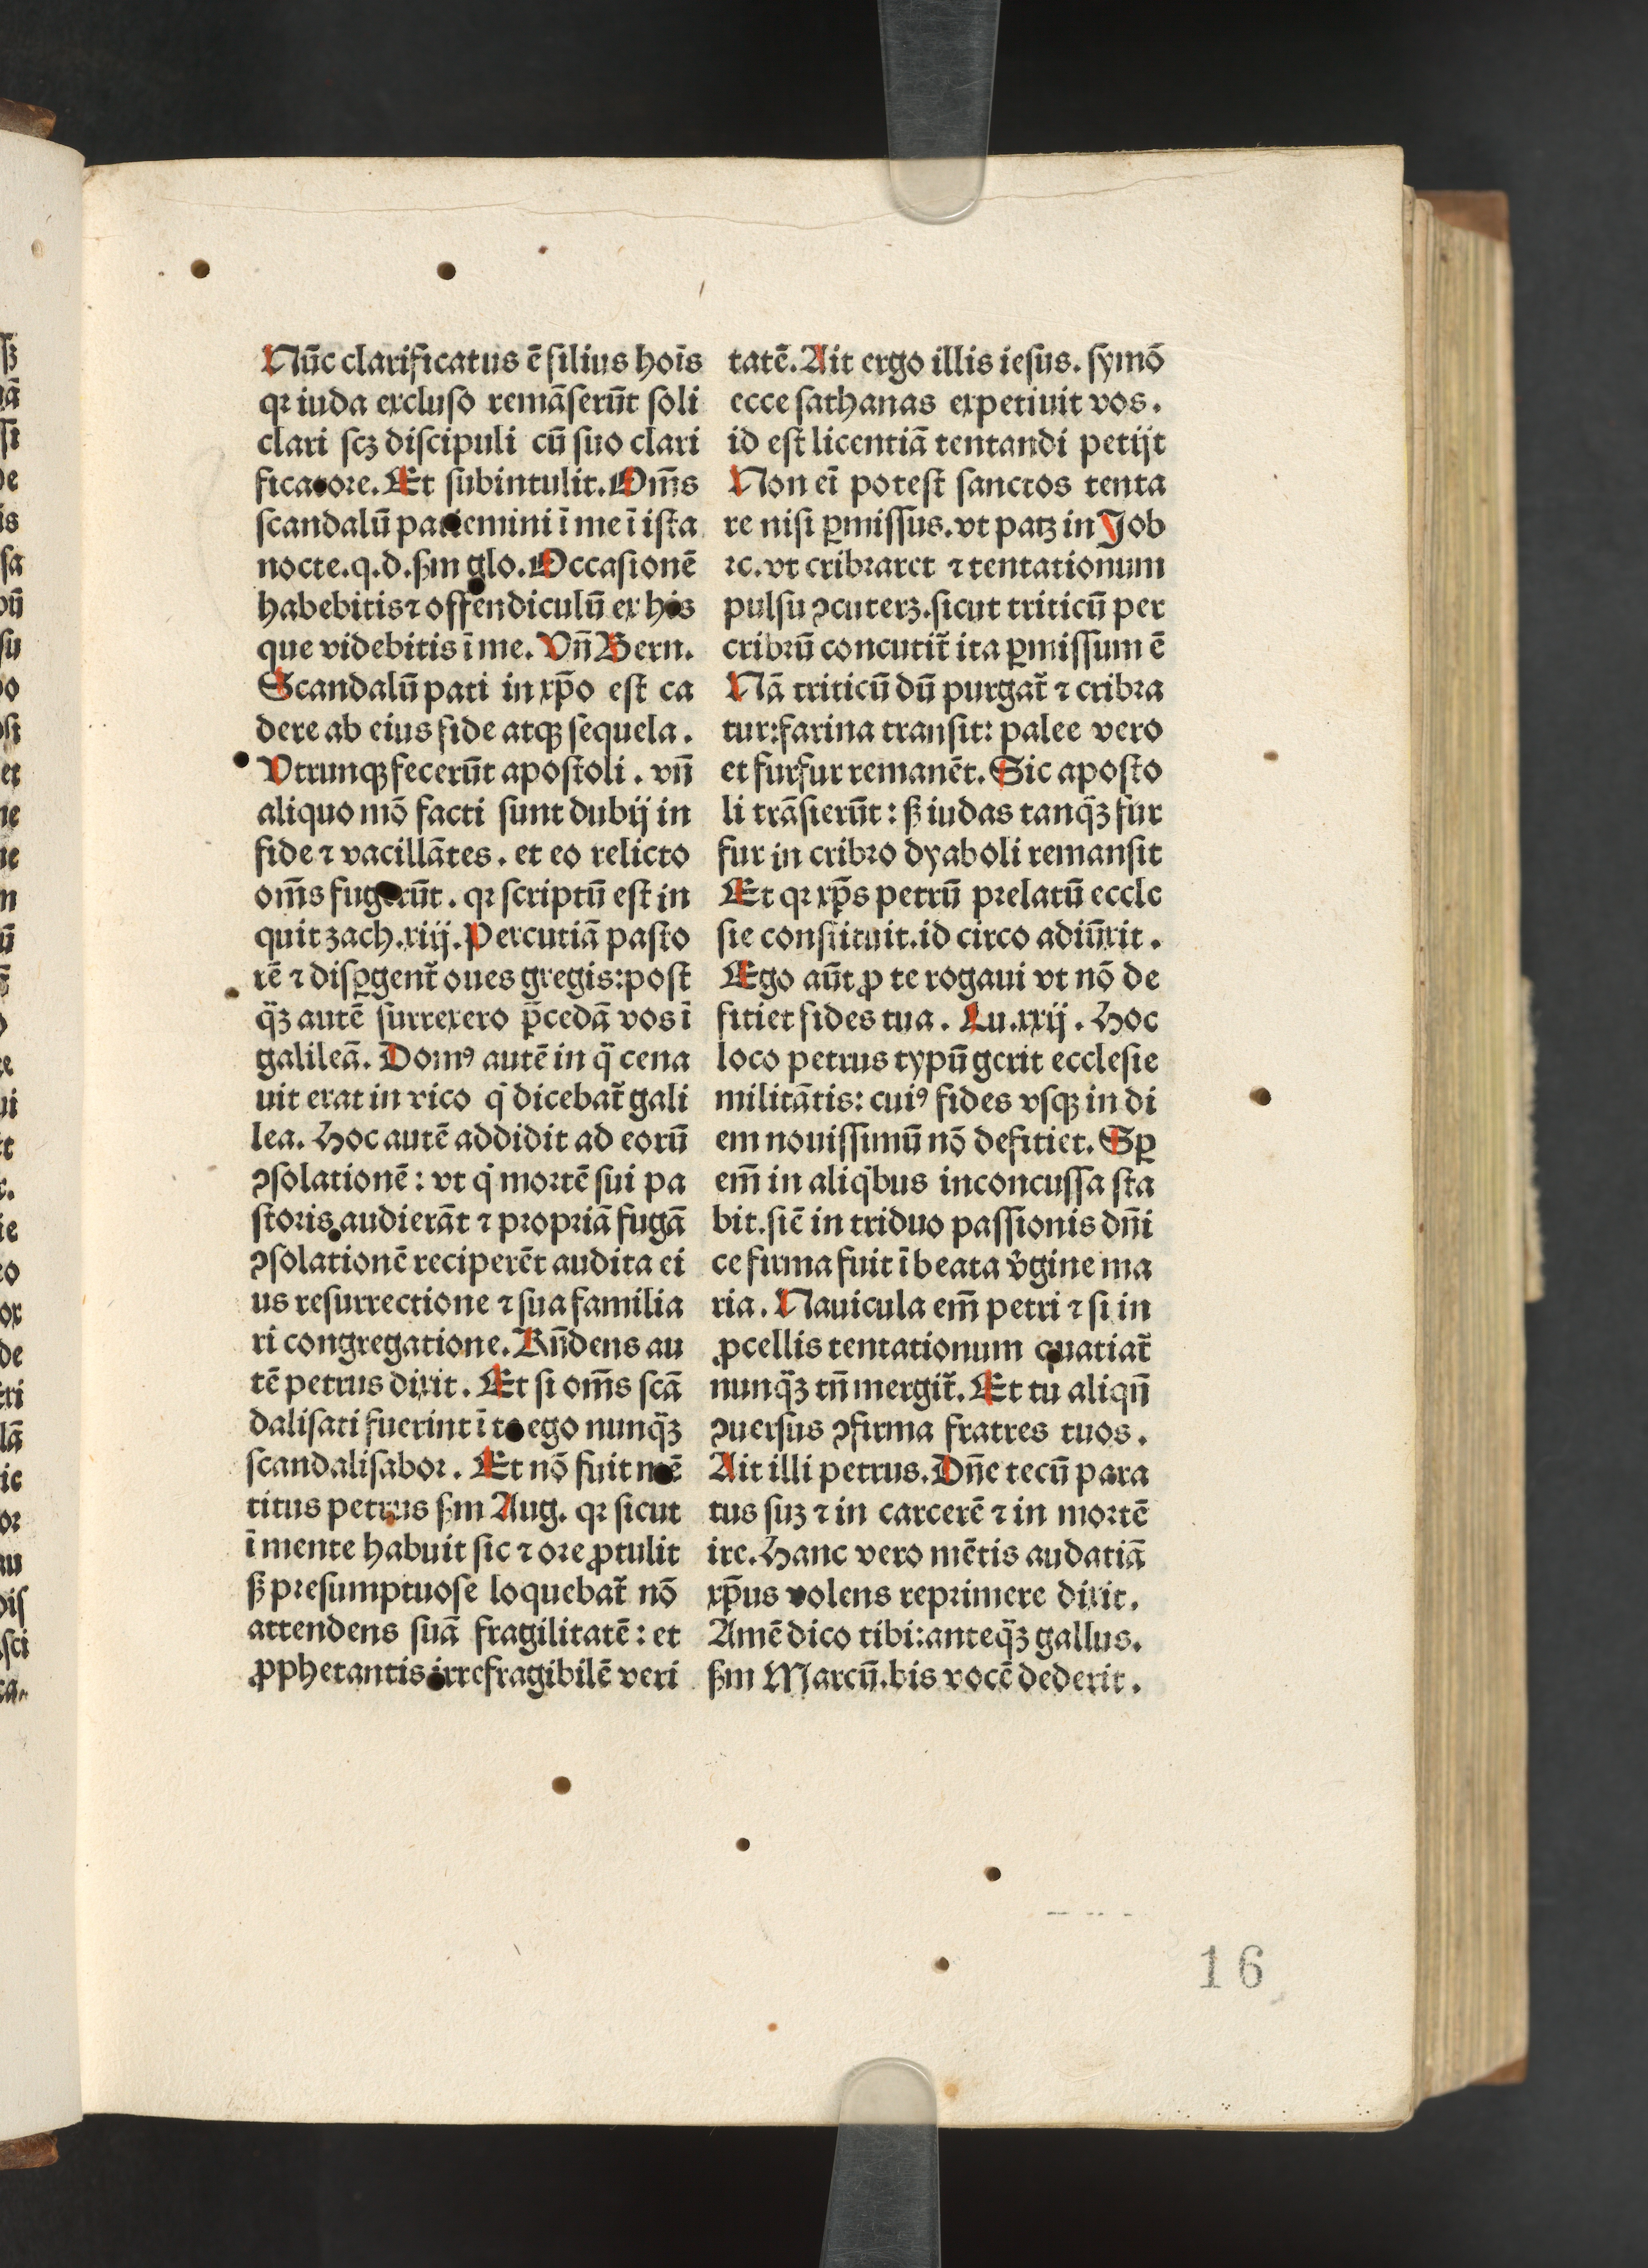 Nūc clarificatus ē filius hoīs
qꝛ iuda excluso remāserūt soli
clari scꝫ discipuli cū suo clari
ficatore. Et subintulit. Om̄s
scandalū patiemini ī me ī ista
nocte. q. d. ẜm glo. Occasionē
habebitis ⁊ offendiculū ex his
que videbitis ī me. Vn̄ Bern.
Scandalū pati in xp̄o est ca
dere ab eius fide atqꝫ sequela.
Vtrunqꝫ fecerūt apostoli. vn̄
aliquo mō facti sunt dubij in
fide ⁊ vacillātes. et eo relicto
om̄s fugerūt. qꝛ scriptū est in
quit zach. xiij. Percutiā pasto
rē ⁊ disꝑgent᷑ oues gregis: post
q̈ꝫ autē surrexero p̄cedā vos ī
galileā. Domꝰ autē in q̈ cena
uit erat in vico q̇ dicebat᷑ gali
lea. Hoc autē addidit ad eorū
ꝯsolationē: vt q̇ mortē sui pa
storis audierāt ⁊ propriā fugā
ꝯsolationē reciperēt audita ei
us resurrectione ⁊ sua familia
ri congregatione. Rn̄dens au
tē petrus dixit. Et si om̄s scā
dalisati fuerint ī te ego nunq̈ꝫ
scandalisabor. Et nō fuit mē
titus petrus ẜm Aug. qꝛ sicut
ī mente habuit sic ⁊ ore ꝓtulit
ẜ presumptuose loquebat᷑ nō
attendens suā fragilitatē: et
ꝓphetantis irrefragibilē veri
tatē. Ait ergo illis iesus. symō
ecce sathanas expetiuit vos.
id est licentiā tentandi petijt
Non ei̅ potest sanctos tenta
re nisi ꝑmissus. vt patꝫ in Job
⁊c. vt cribraret ⁊ tentationum
pulsu ꝯcuterꝫ. sicut triticū per
cribrū concutit᷑ ita ꝑmissum ē
Nā triticū dū purgat᷑ ⁊ cribra
tur: farina transit: palee vero
et furfur remanēt. Sic aposto
li trāsierūt: ẜ iudas tanq̈ꝫ fur
fur in cribro dyaboli remansit
Et qꝛ xp̄s petrū prelatū eccle
sie constituit. id circo adiūxit.
Ego aūt ꝓ te rogaui vt nō de
fitiet fides tua. Lu. xxij. Hoc
loco petrus typū gerit ecclesie
militātis: cuiꝰ fides vsqꝫ in di
em nouissimū nō defitiet. Sꝑ
em̄ in aliq̇bus inconcussa sta
bit. siē in triduo passionis dn̄i
ce firma fuit ī beata v̓gine ma
ria. Nauicula em̄ petri ⁊ si in
ꝓcellis tentationum quatiat᷑
nunq̈ꝫ tn̄ mergit᷑. Et tu aliqn̄
ꝯuersus ꝯfirma fratres tuos.
Ait illi petrus. Dn̄e tecū para
tus suꝫ ⁊ in carcerē ⁊ in mortē
ire. Hanc vero mētis audatiā
xp̄us volens reprimere dixit.
Amē dico tibi: anteq̈ꝫ gallus.
ẜm Marcū. bis vocē dederit.
16